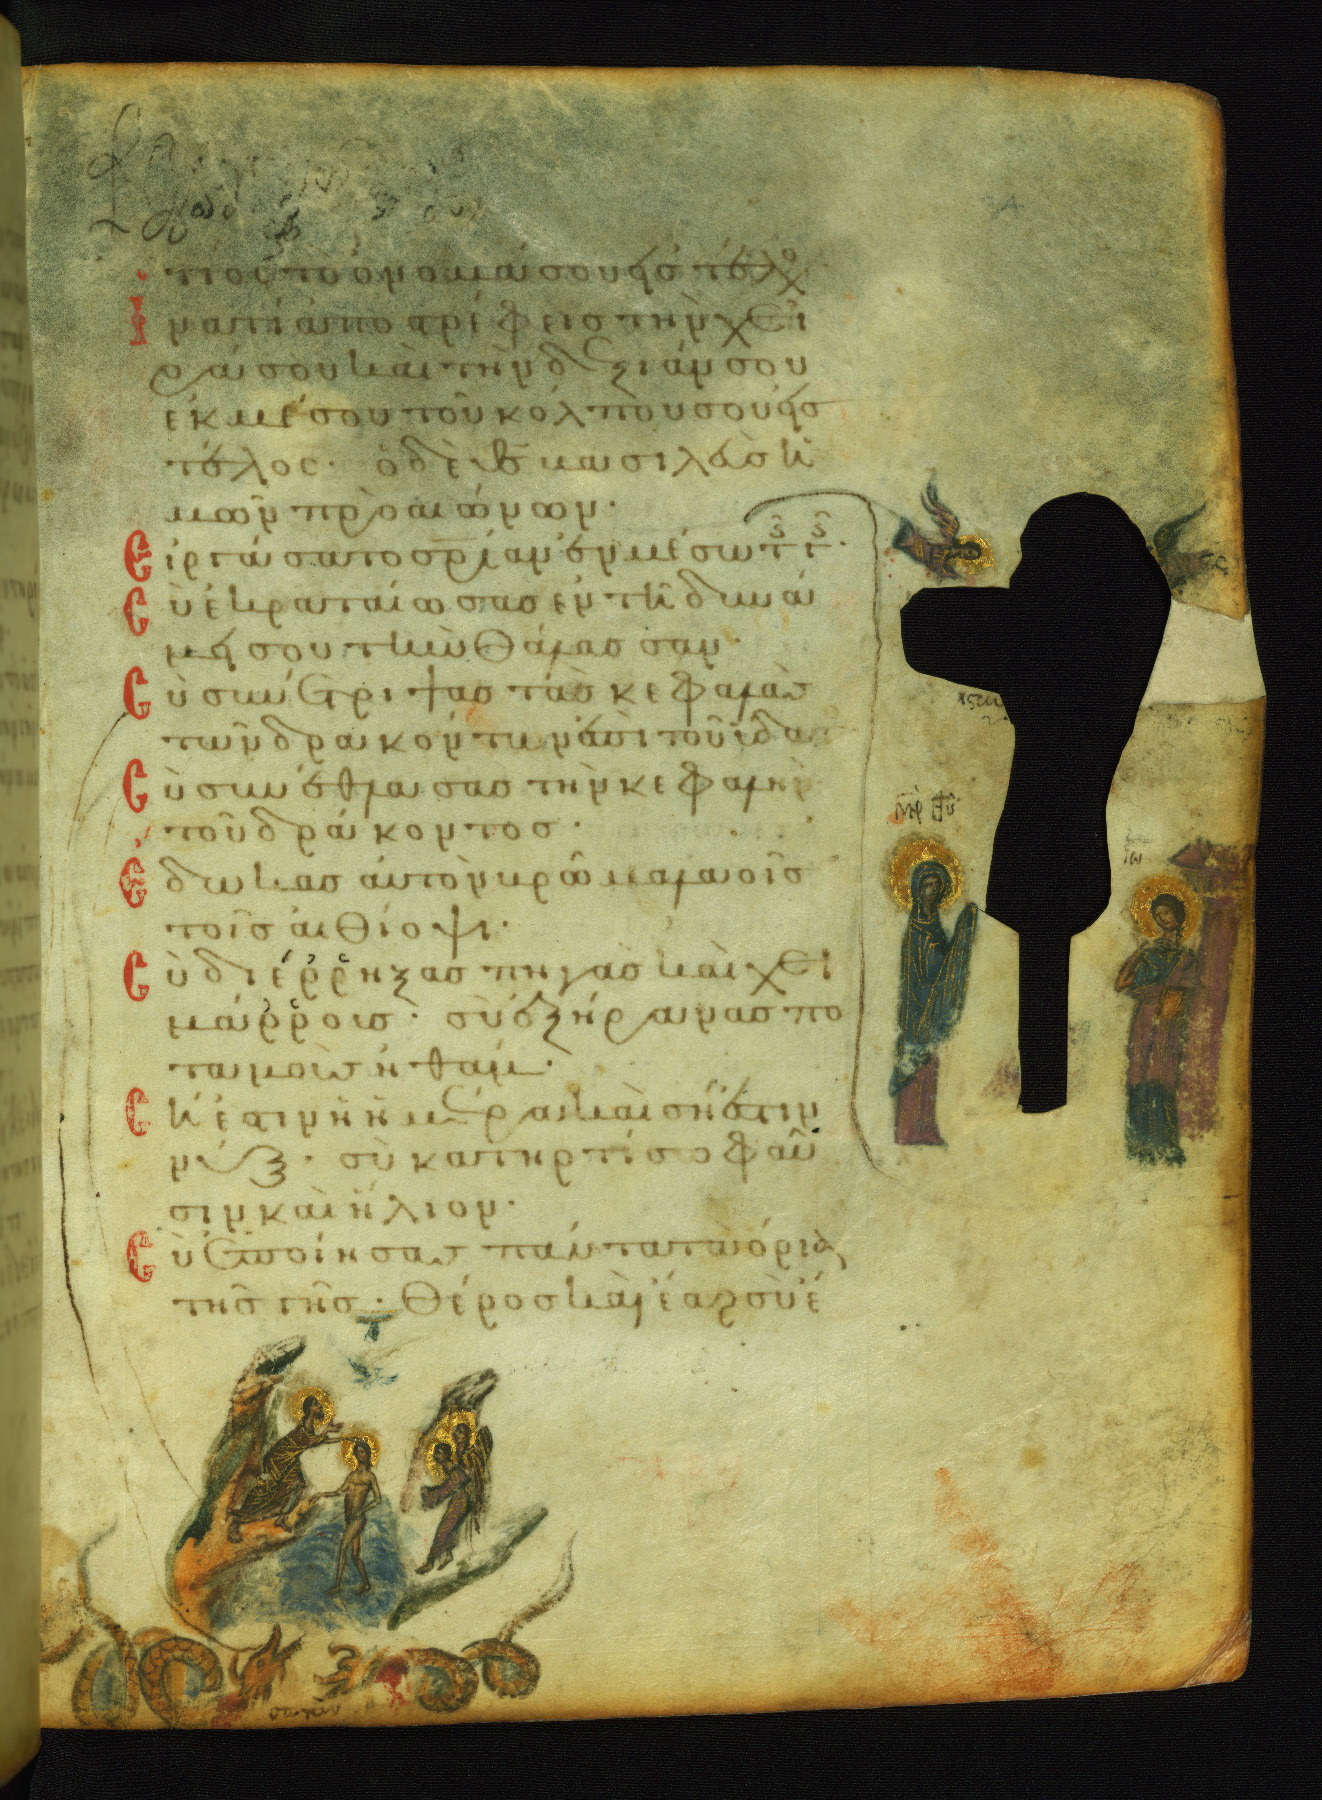 τίος τὸ ὄνομά σου εἰς τέλος
Ἱνατί ἀποστρέφεις τὴν χεῖ
ρά σου καὶ τὴν δεξιάν σου
ἐκ μέσου τοῦ κόλπου σου εἰς
τέλος· ὁ δὲ θς βασιλεὺς ἡ
μῶν πρὸ αἰώνων·
Εἰργάσατο σρίαν ἐν μέσω τ γ·
Σὺ ἐκραταίωσας ἐν τῆ δυνά
μει σου τὴν θάλασσαν·
Σὺ συνέτριψας τὰς κεφαλὰς
τῶν δρακόντων ἐπὶ τοῦ ὕδατ
Σὺ συνέθλασας τὴν κεφαλὴν
τοῦ δράκοντος·
Ἔδωκας αὐτὸν βρῶμα λαοῖς
τοῖς αἰθίοψι·
Σὺ διέρρηξας πηγὰς καὶ χει
μάρρους· σὺ ἐξήρανας πο
ταμοὺς ἠθάμ·
Σή ἐστιν ἡ ἡμέρα καὶ σή ἐστιν
νύξ· σὺ κατηρτίσω φαῦ
σιν καὶ ἥλιον·
Σὺ ἐποίησας πάντα τὰ ὅρια
τῆς γῆς· θέρος καὶ ἔαρ σὺ ἐ
ΜΗΡ ΘΥ
Ιω